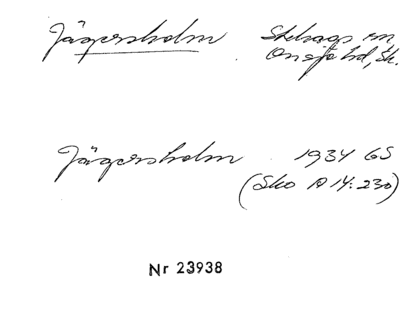 Jägersholm Skelhags sn
Onsjö hd, Sk.
Jägersholm 1934 GS
(Sko A 14:230)
Nr 23938